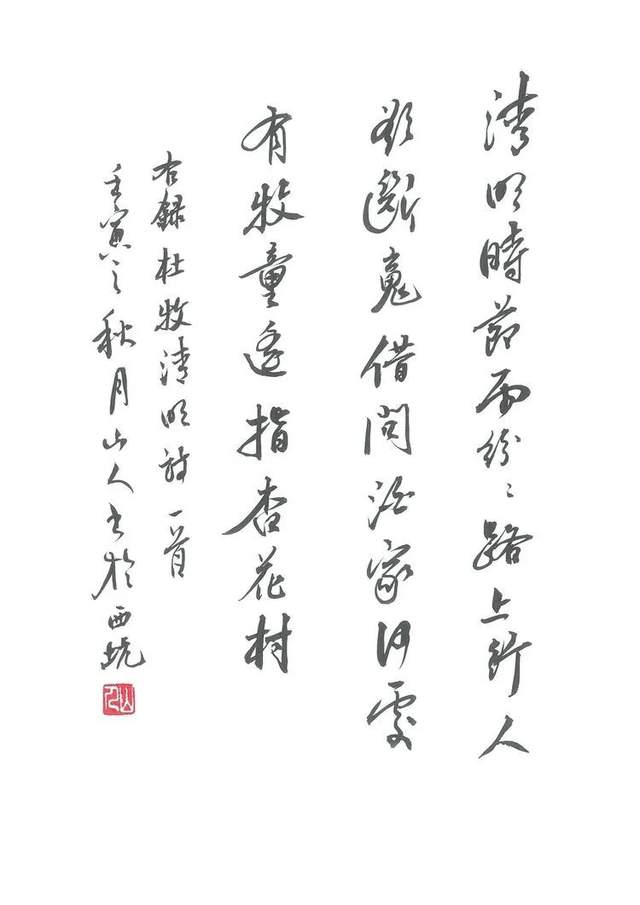 清明時節雨紛〻路上行人
欲斷魂借問酒家何處
有牧童遙指杏花村
右録杜牧清明詩一首
壬寅之秋月山人书於西坑
山人